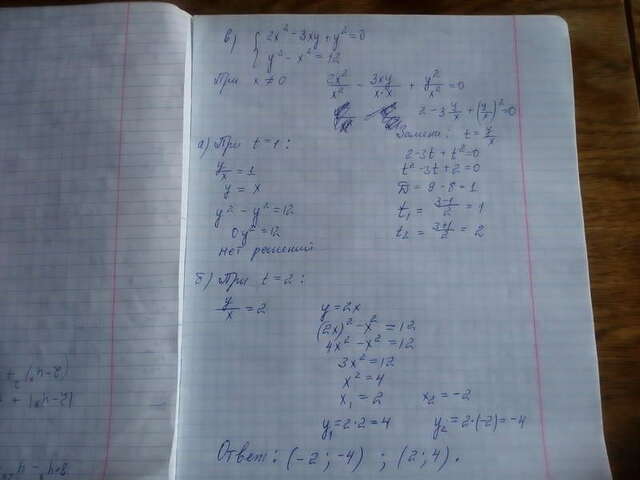 в) { 2x² - 3xy + y² = 0
y² - x² = 12
При x ≠ 0 2x²/x² - 3xy/x·x + y²/x² = 0
2 - 3 y/x + (y/x)² = 0
Замена: t = y/x
2 - 3t + t² = 0
t² - 3t + 2 = 0
D = 9 - 8 = 1
t₁ = 3-1/2 = 1
t₂ = 3+1/2 = 2
а) При t = 1:
y/x = 1
y = x
y² - y² = 12
0y² = 12
нет решений
б) При t = 2:
y/x = 2 y = 2x
(2x)² - x² = 12
4x² - x² = 12
3x² = 12
x² = 4
x₁ = 2 x₂ = -2
y₁ = 2·2 = 4 y₂ = 2·(-2) = -4
Ответ: (-2; -4) ; (2; 4).